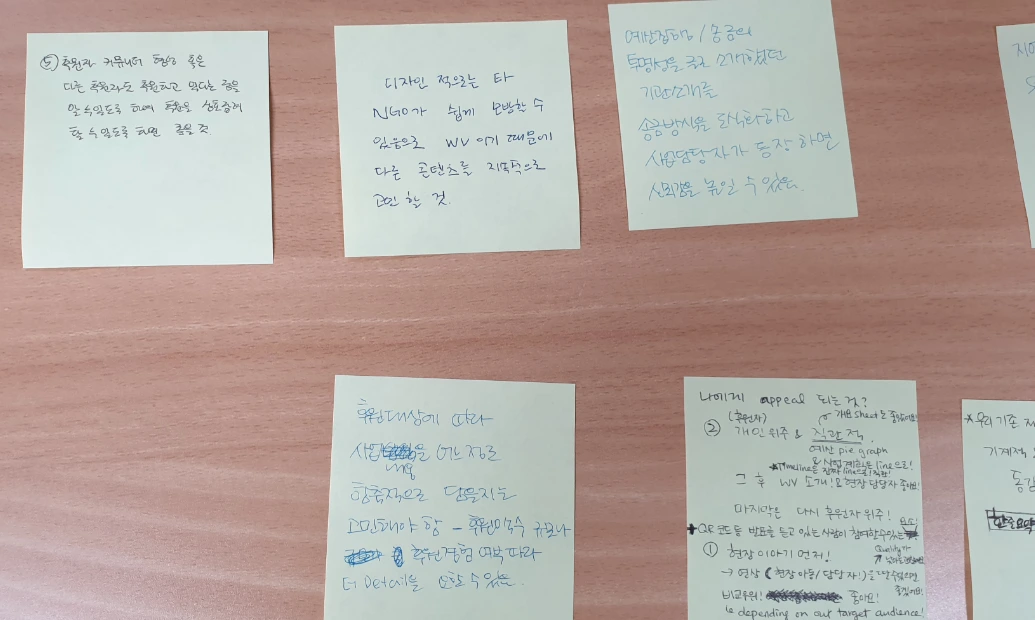 ⑤ 후원자 커뮤니티 형성 혹은
다른 후원자도 후원하고 있다는 것을
알 수 있도록 하여 후원을 상호증려
할 수 있도록 하면 좋을 것
디자인 적으로는 타
NGO가 쉽게 모방할 수
있음으로 WV 이기 때문에
다른 콘텐츠를 지속적으로
고민 할 것.
예산집행 / 송금의
투명성을 글로 소개했던
기관소개를
송금방식을 도식화하고
사업담당자가 등장 하면
신뢰감을 높일 수 있음.
후원대상에 따라
사업 을 어느 정도
내용
함축적으로 담을지는
고민해야 함 - 후원약수 규모나
후원경험 여부 따라
더 Detail을 요할 수 있음.
나에게 appeal 되는것?
(후원자)
개별 sheet는 좋았어요!
② 개인 위주 & 직관적.
예산 pie graph
& 사업계획은 line으로!
★Timeline은 진짜 line으로! 직관!
그 후 WV 소개! & 현장 담당자 좋아요!
마지막은 다시 후원자 위주!
+ QR 코드 등 발표를 듣고 있는 사람이 참여할 수 있는
① 현장 이야기 먼저!
Quality가
→ 영상 (현장 아동/담당자!)을
비교우위! 좋아요!
좋겠어요!
↳ depending on our target audience!
★우리 기존
기계적